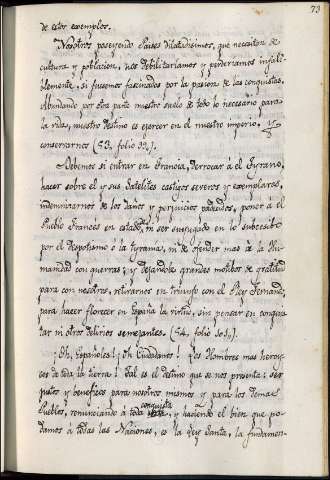 73
de estos exemplos.
Nosotros poseyendo Paises dilatadisimos, que necesitan de
cultura y poblacion, nos debilitariamos y perderiamos infali-
blemente, si fuesemos fascinados por la pasion de las conquistas.
Abundando por otra parte nuestro suelo de todo lo necesario para
la vida, nuestro destino es exercer en el nuestro imperio, y
conservarnos (53. folio 99.).
Debemos si entrar en Francia, derrocar á el Tyrano,
hacer sobre el y sus Satelites castigos severos y exemplares,
indemnizarnos de los daños y perjuicios padecidos, poner á el
Pueblo Frances en estado, ni ser subyugado en lo subcesibo
por el despotismo ó la tyrania, ni de ofender mas á la Hu-
manidad con guerras; y dejandole grandes motibos de gratitud
para con nosotros, retirarnos en triunfo con el Rey Fernando,
para hacer florecer en España la virtud, sin pensar en conquis-
tar ni otros delirios semejantes. (54. folio 101.).
¡Oh, Españoles! ¡Oh Ciudadanos! ¡Los Hombres mas heroy-
ces de toda la tierra! Tal es el destino que se nos presenta: ser
justos y beneficos para nosotros mismos y para los demas
Pueblos, renunciando á toda conquista, y haciendo el bien que po-
damos á todas las Naciones, es la Ley Santa, la fundamen-